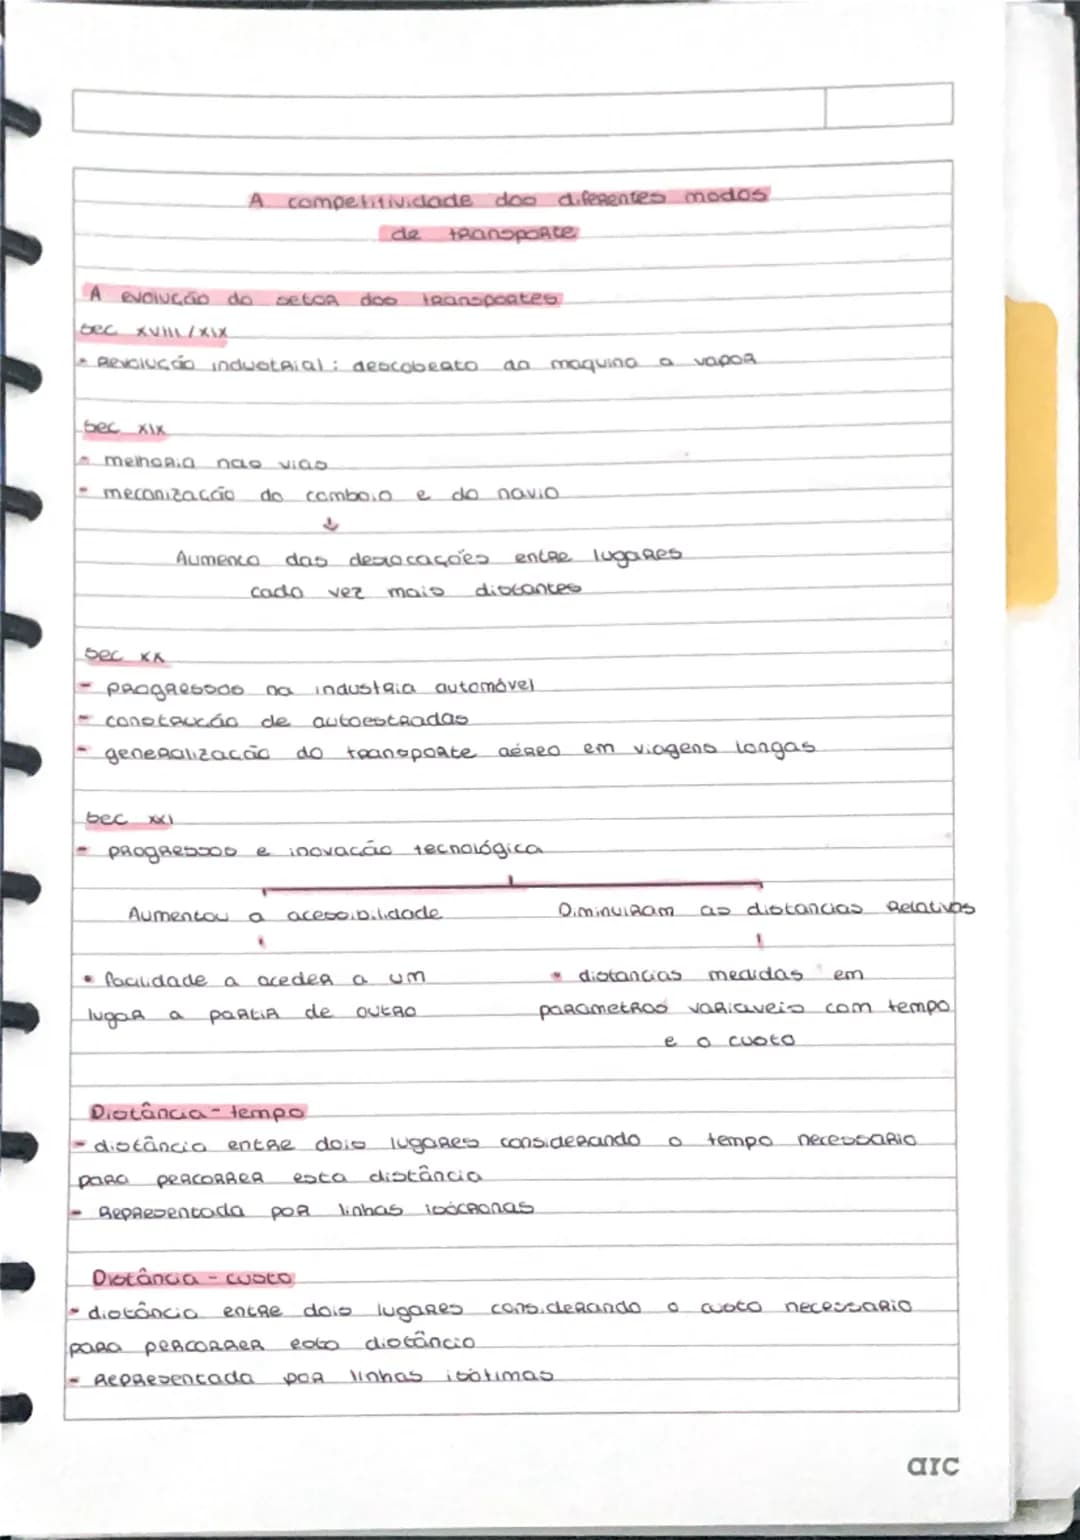 A competitividade dos diferentes modos
de transporte
A evolução do setor dos transportes
sec XVIII / XIX
• Revolução industrial : descoberto da maquina a vapor
sec XIX
- melhoria nas vias
- mecanização do comboio e do navio
↓
Aumento das deslocações entre lugares
cada vez mais distantes
sec XX
- progressos na industria automóvel
- construcão de autoestradas
- generalizacão do transporte aéreo em viagens longas
sec XXI
- progressos e inovacão tecnológica
Aumentou a acessibilidade Diminuiram as distancias relativas
• facilidade a aceder a um • distancias medidas em
lugar a partir de outro parametros variaveis com tempo
e o custo
Distância - tempo
- distância entre dois lugares considerando o tempo necessario
para percorrer esta distância
- Representada por linhas isócronas
Distância - custo
- distância entre dois lugares considerando o custo necessario
para percorrer esta distância
- Representada por linhas isótimas
arc